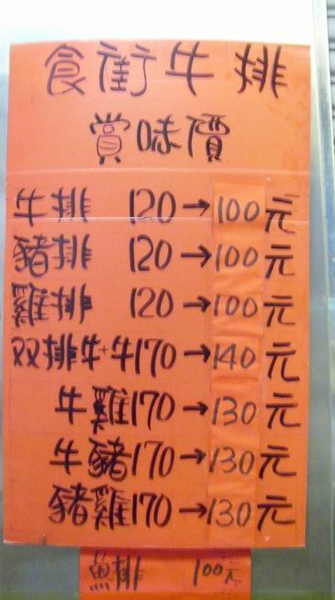 食街牛排
賞味價
牛排 120→100元
豬排 120→100元
雞排 120→100元
双排牛+牛170→140元
牛雞170→130元
牛豬170→130元
豬雞170→130元
魚排 100元